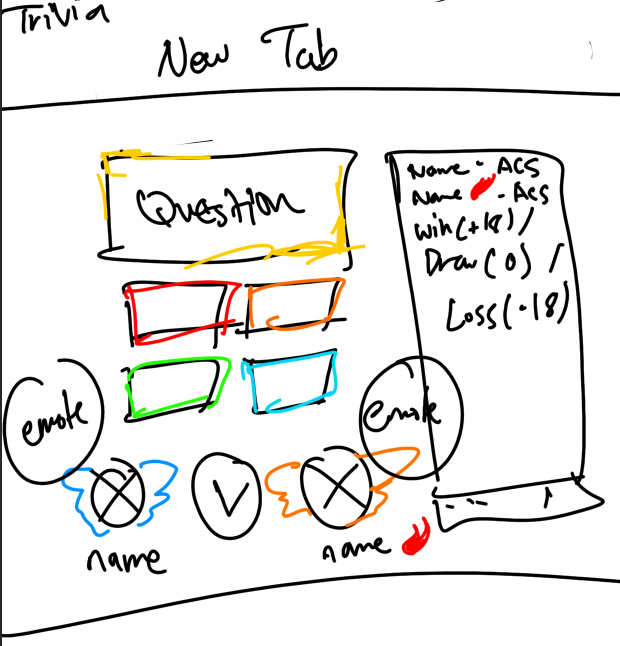 Trivia
New Tab
Question
Name - ACS
Name - ACS
Win(+18) /
Draw(0) /
Loss(-18)
emote
emote
V
name
name